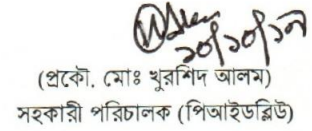 ২০/১০/১৯
(প্রকৌ. মোঃ খুরশিদ আলম)
সহকারী পরিচালক (পিআইডব্লিউ)